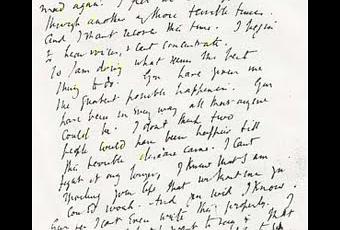 mad again. I feel we
through another of those terrible times.
And I shant recover this time. I begin
to hear voices, & cant concentrate.
So I am doing what seems the best
thing to do. You have given me
the greatest possible happiness. You
have been in every way all that anyone
could be. I dont think two
people could have been happier till
this terrible disease came. I cant
fight it any longer, I know that I am
spoiling your life, that without me you
could work. And you will I know.
You see I cant even write this properly. I
to say is that